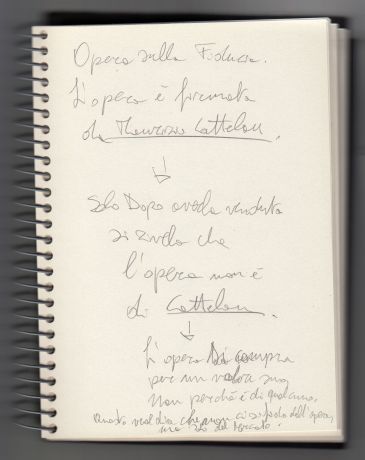 Opera sulla Fiducia.
L'opera è firmata
da Maurizio Cattelan.
Solo Dopo averla venduta
si rivela che
l'opera non è
di Cattelan.
L'opera Si compra
per un valore suo
non perché è di qualcuno.
Questo vuol dire che non ci si fida dell'opera,
ma sò del Mercato.